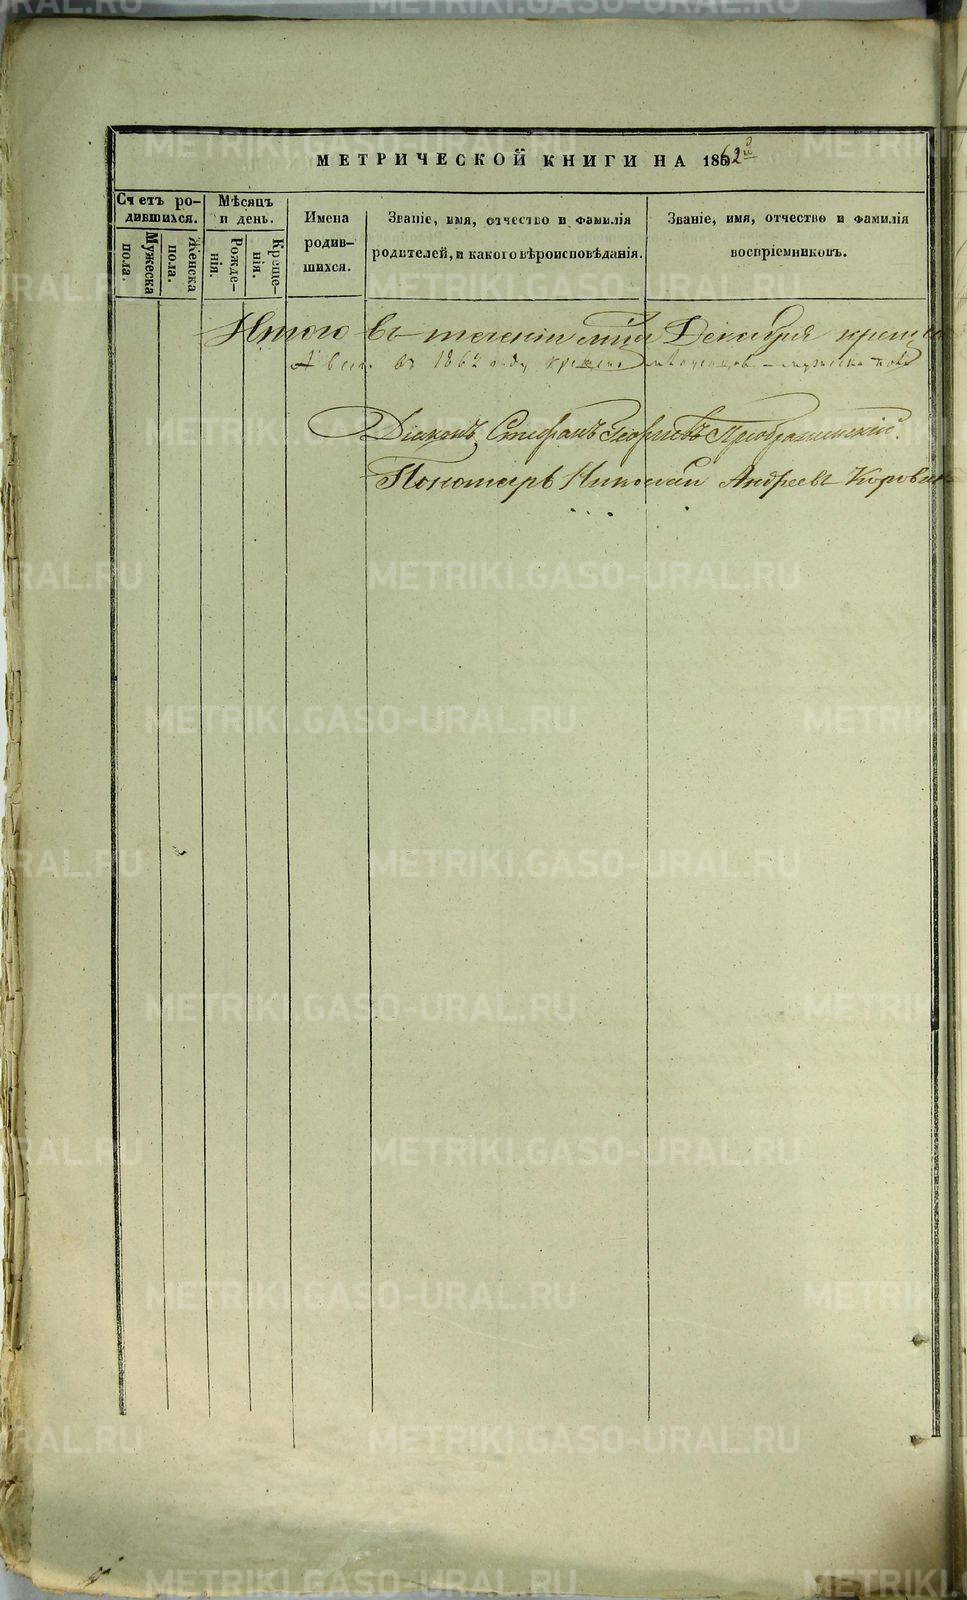 МЕТРИЧЕСКОЙ КНИГИ НА 1862й
Счетъ ро-
дившихся.
Мужеска
пола.
Женска
пола.
Мѣсяцъ
и день.
Рожде-
нія.
Креще-
нія.
Имена
родив-
шихся.
Званіе, имя, отчество и фамилія
родителей, и какого вѣроисповѣданія.
Званіе, имя, отчество и фамилія
воспріемниковъ.
Итого въ теченіи Декабря
А въ 1862 году крещено младенцов – мужеска пола
Діаконъ Стефанъ Георгіевъ Преображенскій.
Пономарь Николай Андреевъ
METRIKI.GASO-URAL.RU